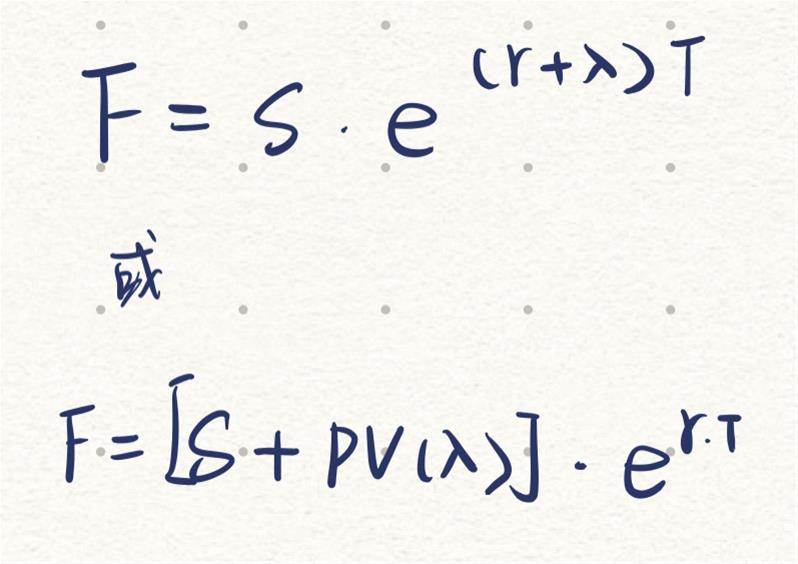 F = S · e^(r+λ)T
或
F = [S + PV(λ)] · e^r.T